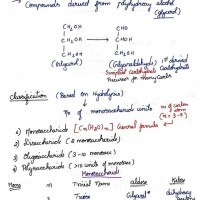 → Compounds derived from polyhydroxy alcohol
(glycerol)
CH₂OH CHO
CHOH → CHOH
CH₂OH CH₂OH
(Glycerol) (Glyceraldehyde) → 1st derived Carbohydrate
Simplest Carbohydrate
Precursor for many Carbs
Classification (Based on Hydrolysis)
↳ No of monosaccharide units
1) Monosaccharide [Cn(H₂O)n] General formula
2) Disaccharide (2 monosaccharide)
3) Oligosaccharide (3-10 monomers)
4) Polysaccharide (>10 units of monomer)
Monosaccharide
Mono n Trivial Name Aldose Ketos
3 Triose Glycerol dihydroxy